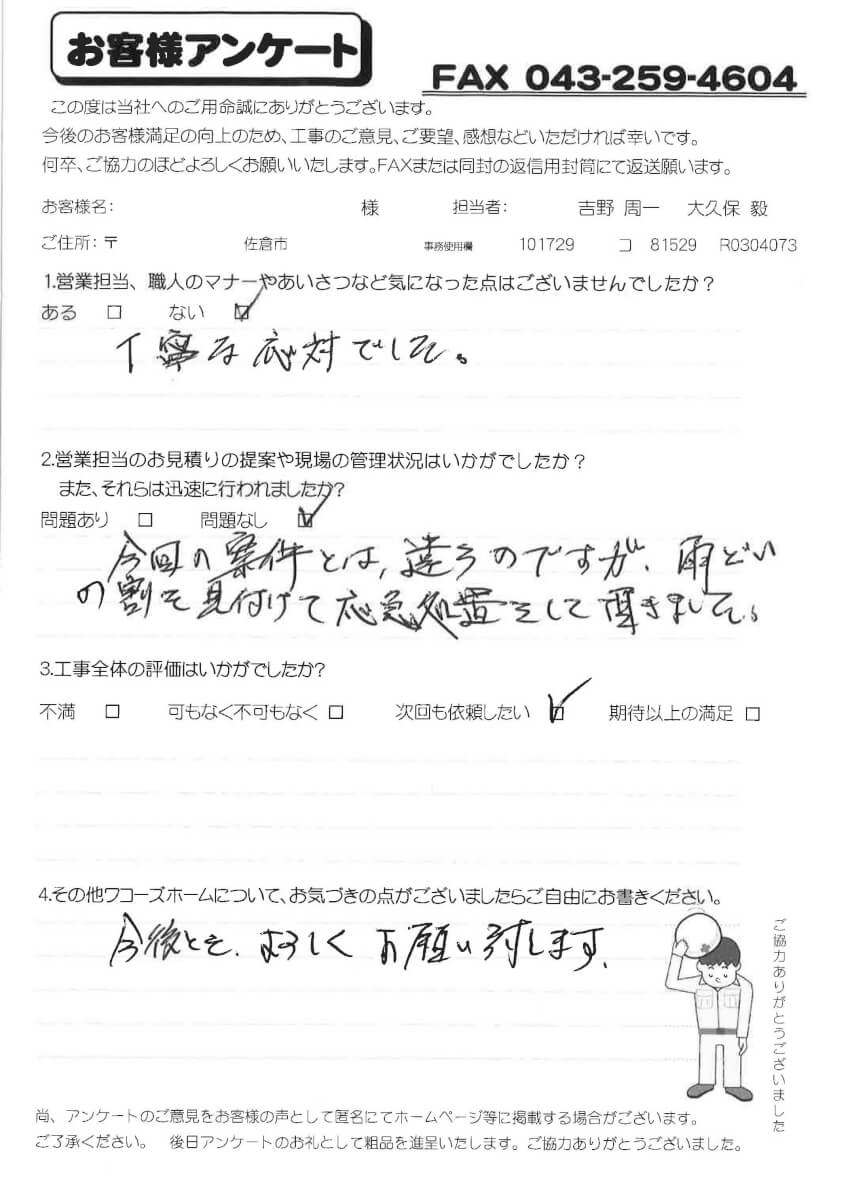 お客様アンケート
FAX 043-259-4604
この度は当社へのご用命誠にありがとうございます。
今後のお客様満足の向上のため、工事のご意見、ご要望、感想などいただければ幸いです。
何卒、ご協力のほどよろしくお願いいたします。FAXまたは同封の返信用封筒にて返送願います。
お客様名： 様 担当者： 吉野 周一 大久保 毅
ご住所：〒 佐倉市 事務使用欄 101729 コ 81529 R0304073
1.営業担当、職人のマナーやあいさつなど気になった点はございませんでしたか？
ある □ ない ☑
丁寧な応対でした。
2.営業担当のお見積りの提案や現場の管理状況はいかがでしたか？
また、それらは迅速に行われましたか？
問題あり □ 問題なし ☑
今回の案件とは、違うのですが、雨どい
の割を見付けて応急処置をして頂きました。
3.工事全体の評価はいかがでしたか？
不満 □ 可もなく不可もなく □ 次回も依頼したい ☑ 期待以上の満足 □
4.その他ワコーズホームについて、お気づきの点がございましたらご自由にお書きください。
今後とも、よろしくお願い致します。
ご協力ありがとうございました
尚、アンケートのご意見をお客様の声として匿名にてホームページ等に掲載する場合がございます。
ご了承ください。 後日アンケートのお礼として粗品を進呈いたします。ご協力ありがとうございました。